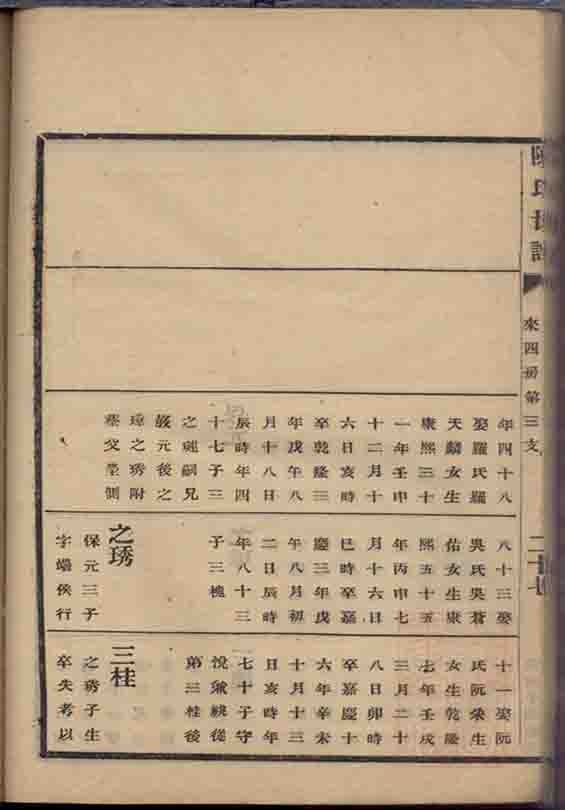 陳氏譜
來四房第三支
年四十八
娶羅氏羅
天麟女生
康熙三十
一年壬申
十二月十
六日亥時
卒乾隆三
年戊午八
月十八日
辰時年四
十七子三
之嗣兄
元後之
璋之琇附
葬父塋側
八十三娶
吳氏吳蒼
佑女生康
熙五十五
年丙申七
月十六日
巳時卒嘉
慶三年戊
午八月初
二日辰時
年八十三
子三槐
之琇
保元三子
字侯行
十一娶阮
氏阮榮生
女生乾隆
七年壬戌
三月二十
八日卯時
卒嘉慶十
六年辛未
十月十三
日亥時年
七十子守
悅兼祧從
第三桂後
三桂
之琇子生
卒失考以